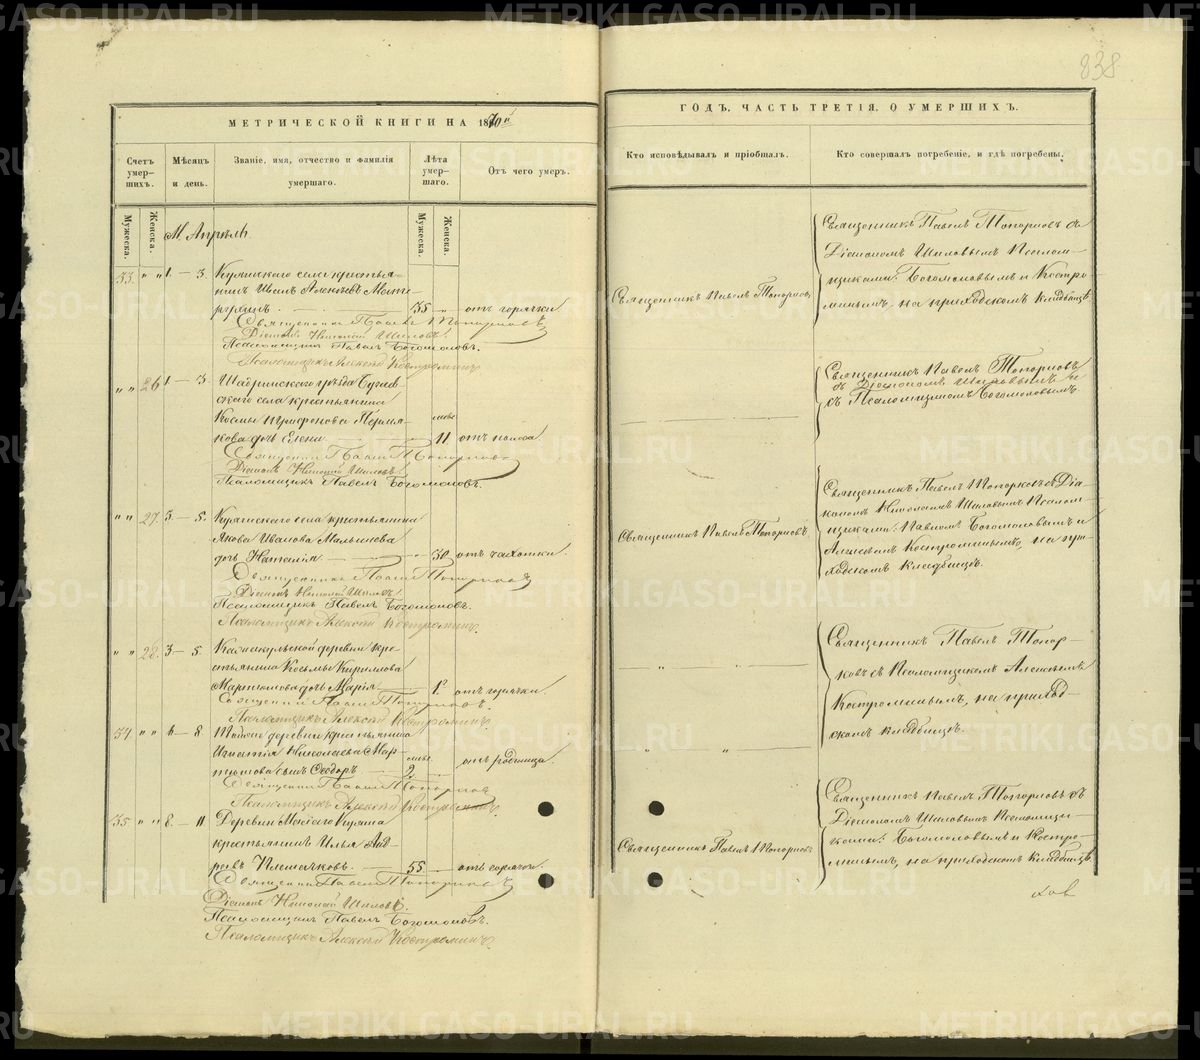 838
МЕТРИЧЕСКОЙ КНИГИ НА 1870й
Счетъ умер-шихъ.
Мѣсяцъ и день.
Званіе, имя, отчество и фамилія умершаго.
Лѣта умер-шаго.
Отъ чего умеръ.
Мужеска.
Женска.
Мужеска.
Женска.
М. Апрѣль
33. " " 1 — 3.
крестья-
нинъ Иванъ
35 — отъ горячки.
Священникъ Павелъ Топорковъ
Діаконъ Николай Шиловъ.
Псаломщикъ Павелъ Богомоловъ.
Псаломщикъ Алексѣй Костроминъ.
" " 26 1 — 3.
Шадринскаго уѣзда
скаго села крестьянина
кова дочь Елена — 11 отъ поноса.
Священникъ Павелъ Топорковъ
Діаконъ Николай Шиловъ.
Псаломщикъ Павелъ Богомоловъ.
" " 27. 3 — 5.
села крестьянина
Якова Иванова Малышева
дочь Наталія — 30 отъ чахотки.
Священникъ Павелъ Топорковъ
Діаконъ Николай Шиловъ.
Псаломщикъ Павелъ Богомоловъ.
Псаломщикъ Алексѣй Костроминъ.
" " 28. 3 — 5.
деревни кре-
стьянина Косьмы Кирилова
Мартюшова дочь Марія — отъ горячки.
Священникъ Павелъ Топорковъ.
Псаломщикъ Алексѣй Костроминъ
34 " " 6 — 8.
деревни крестьянина
Игнатія Николаева Мар-
тюшова сынъ Ѳеодоръ 2. отъ родимца.
Священникъ Павелъ Топорковъ
Псаломщикъ Алексѣй Костроминъ.
35 " " 8 — 11
Деревни
крестьянинъ Илья
ровъ — 55 — отъ горячки.
Священникъ Павелъ Топорковъ
Діаконъ Николай Шиловъ.
Псаломщикъ Павелъ Богомоловъ.
Псаломщикъ Алексѣй Костроминъ.
ГОДЪ, ЧАСТЬ ТРЕТІЯ, О УМЕРШИХЪ.
Кто исповѣдывалъ и пріобщалъ.
Кто совершалъ погребеніе, и гдѣ погребены.
Священникъ Павелъ Топорковъ
Священникъ Павелъ Топорковъ съ
Діакономъ Шиловымъ Псалом-
щиками: Богомоловымъ и Костро-
минымъ, на приходскомъ кладбищѣ.
Священникъ Павелъ Топорковъ
съ Діакономъ Шиловымъ и
съ Псаломщикомъ Богомоловымъ
Священникъ Павелъ Топорковъ
Священникъ Павелъ Топорковъ съ Діа-
кономъ Николаемъ Шиловымъ Псалом-
щиками: Павломъ Богомоловымъ и
Алексѣемъ Костроминымъ, на при-
ходскомъ кладбищѣ.
" "
Священникъ Павелъ Топор-
ковъ съ Псаломщикомъ Алексѣемъ
Костроминымъ, на приход-
скомъ кладбищѣ.
" "
Священникъ Павелъ Топорковъ
Священникъ Павелъ Топорковъ съ
Діакономъ Шиловымъ Псаломщи-
ками: Богомоловымъ и Костро-
минымъ, на приходскомъ кладбищѣ.
METRIKI.GASO-URAL.RU